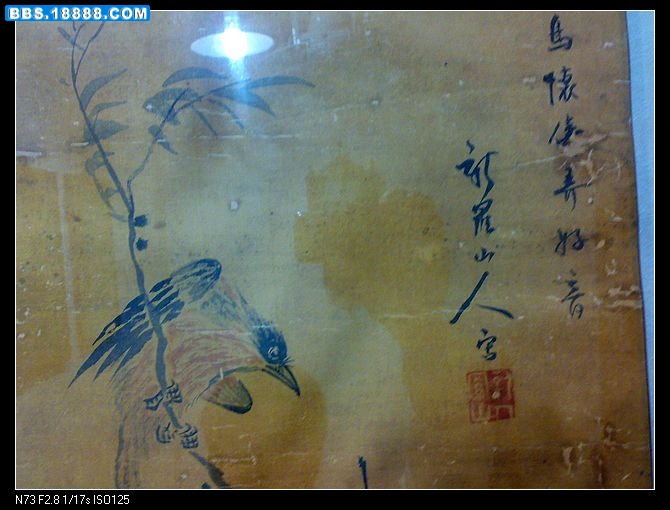 BBS.18888.COM
懷弄好音
新羅山人寫
N73 F2.8 1/17s ISO125